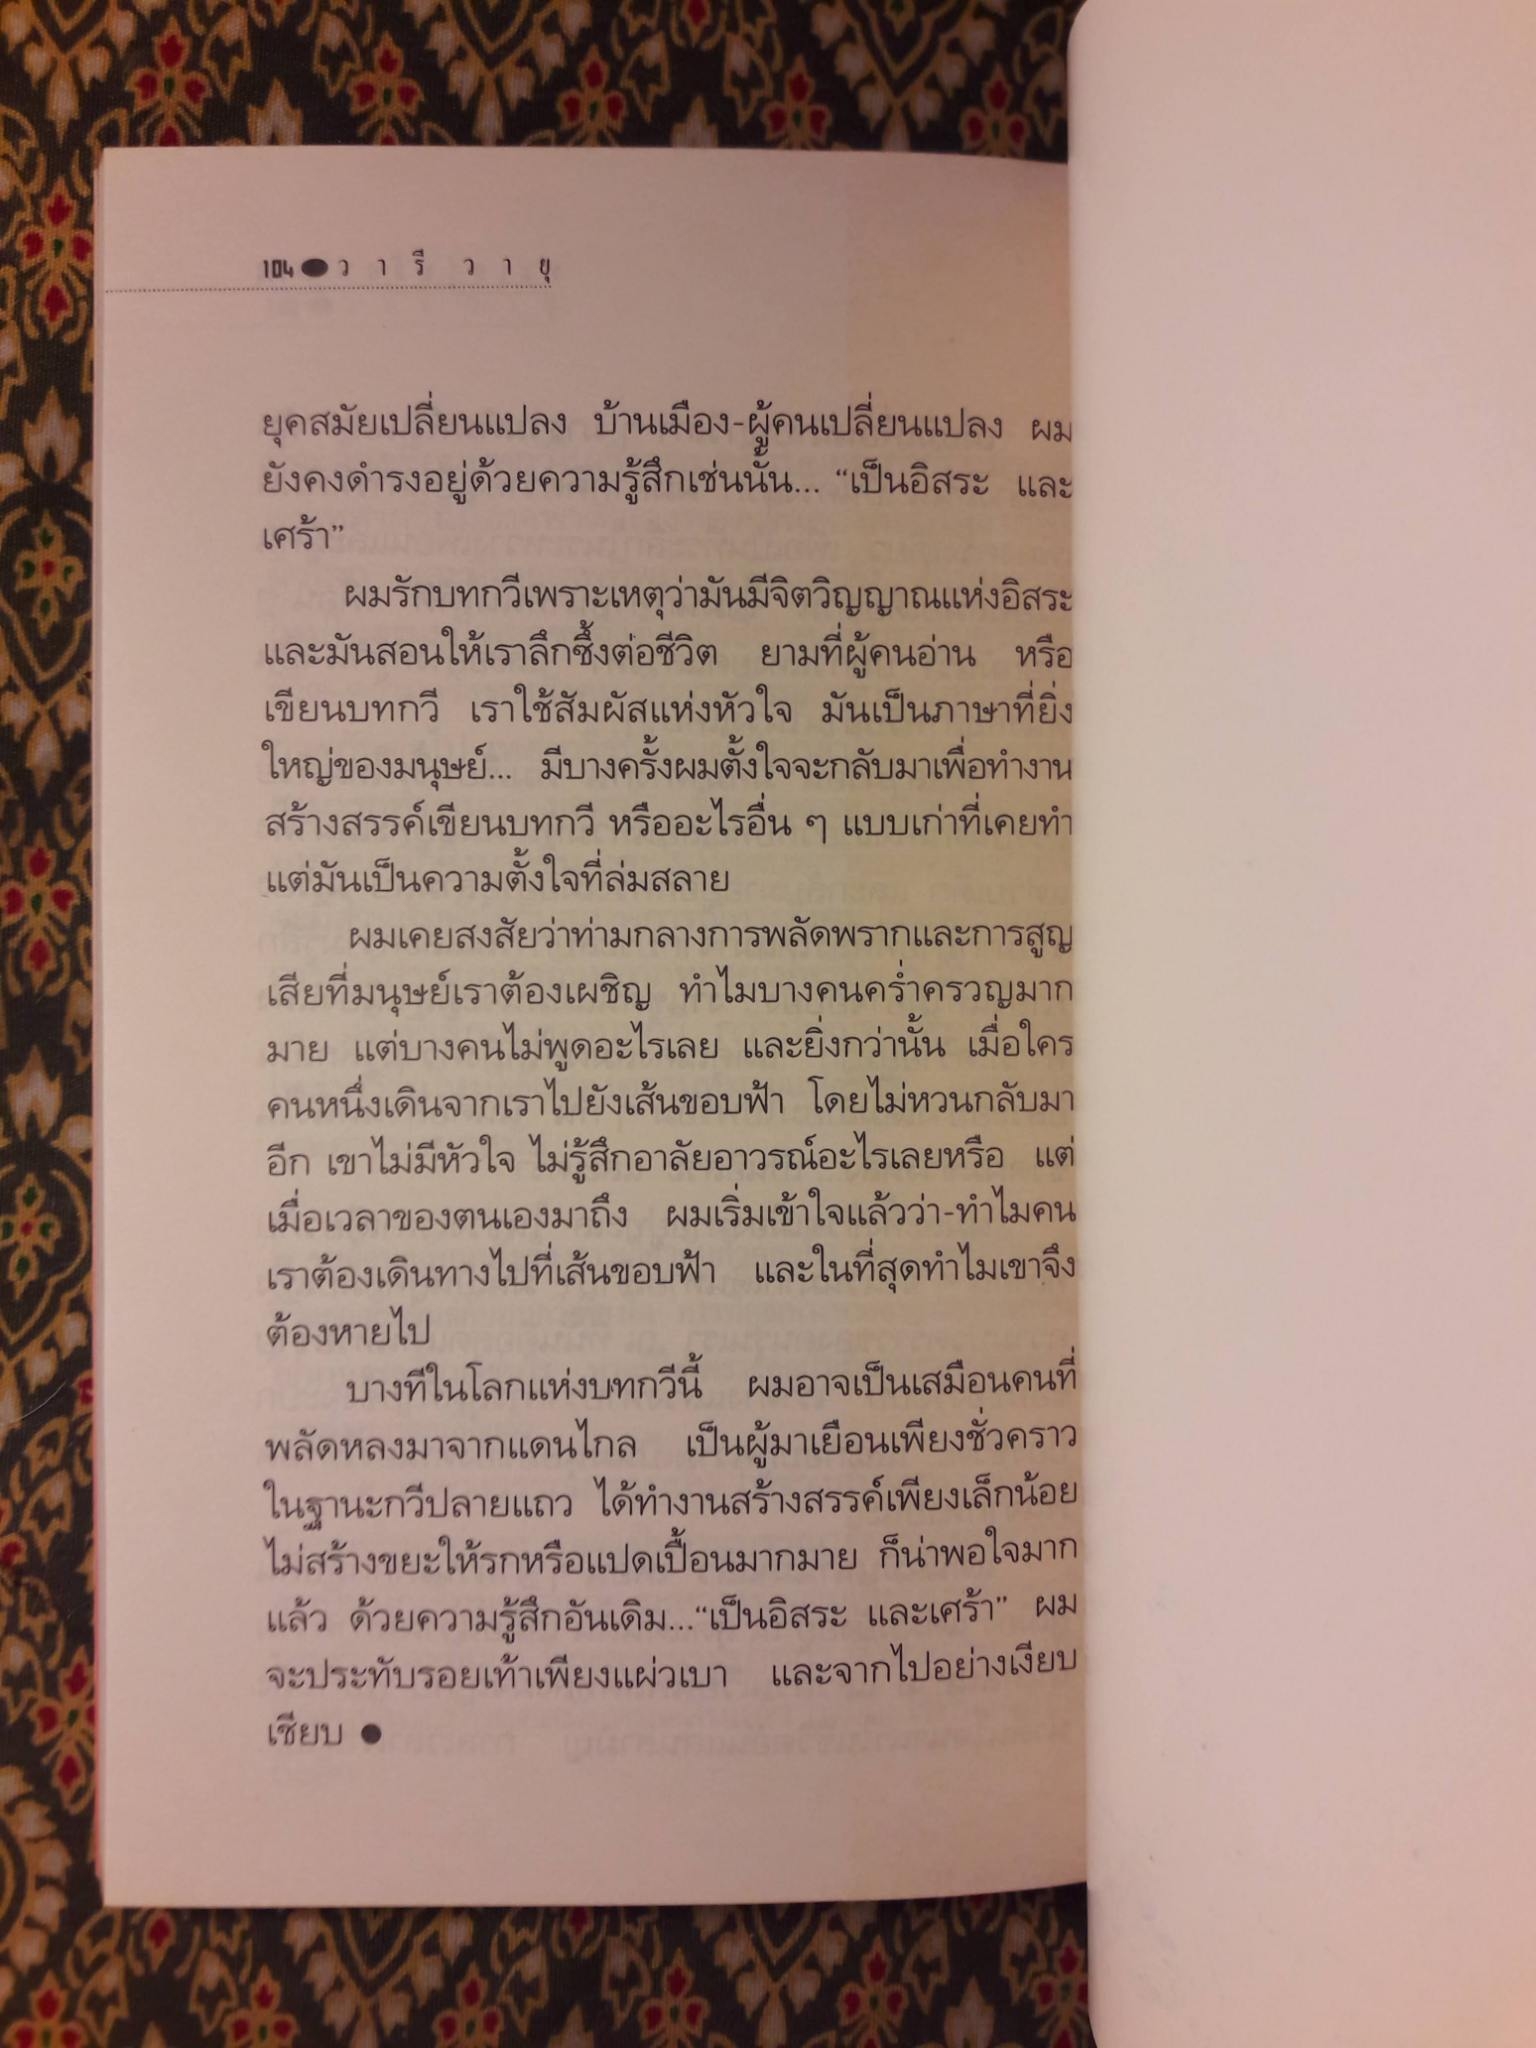 104 ● ว า รี ว า ยุ
ยุคสมัยเปลี่ยนแปลง บ้านเมือง-ผู้คนเปลี่ยนแปลง ผม
ยังคงดำรงอยู่ด้วยความรู้สึกเช่นนั้น... “เป็นอิสระ และ
เศร้า”
ผมรักบทกวีเพราะเหตุว่ามันมีจิตวิญญาณแห่งอิสระ
และมันสอนให้เราลึกซึ้งต่อชีวิต ยามที่ผู้คนอ่าน หรือ
เขียนบทกวี เราใช้สัมผัสแห่งหัวใจ มันเป็นภาษาที่ยิ่ง
ใหญ่ของมนุษย์... มีบางครั้งผมตั้งใจจะกลับมาเพื่อทำงาน
สร้างสรรค์เขียนบทกวี หรืออะไรอื่น ๆ แบบเก่าที่เคยทำ
แต่มันเป็นความตั้งใจที่ล่มสลาย
ผมเคยสงสัยว่าท่ามกลางการพลัดพรากและการสูญ
เสียที่มนุษย์เราต้องเผชิญ ทำไมบางคนคร่ำครวญมาก
มาย แต่บางคนไม่พูดอะไรเลย และยิ่งกว่านั้น เมื่อใคร
คนหนึ่งเดินจากเราไปยังเส้นขอบฟ้า โดยไม่หวนกลับมา
อีก เขาไม่มีหัวใจ ไม่รู้สึกอาลัยอาวรณ์อะไรเลยหรือ แต่
เมื่อเวลาของตนเองมาถึง ผมเริ่มเข้าใจแล้วว่า-ทำไมคน
เราต้องเดินทางไปที่เส้นขอบฟ้า และในที่สุดทำไมเขาจึง
ต้องหายไป
บางทีในโลกแห่งบทกวีนี้ ผมอาจเป็นเสมือนคนที่
พลัดหลงมาจากแดนไกล เป็นผู้มาเยือนเพียงชั่วคราว
ในฐานะกวีปลายแถว ได้ทำงานสร้างสรรค์เพียงเล็กน้อย
ไม่สร้างขยะให้รกหรือแปดเปื้อนมากมาย ก็น่าพอใจมาก
แล้ว ด้วยความรู้สึกอันเดิม...“เป็นอิสระ และเศร้า” ผม
จะประทับรอยเท้าเพียงแผ่วเบา และจากไปอย่างเงียบ
เชียบ ●